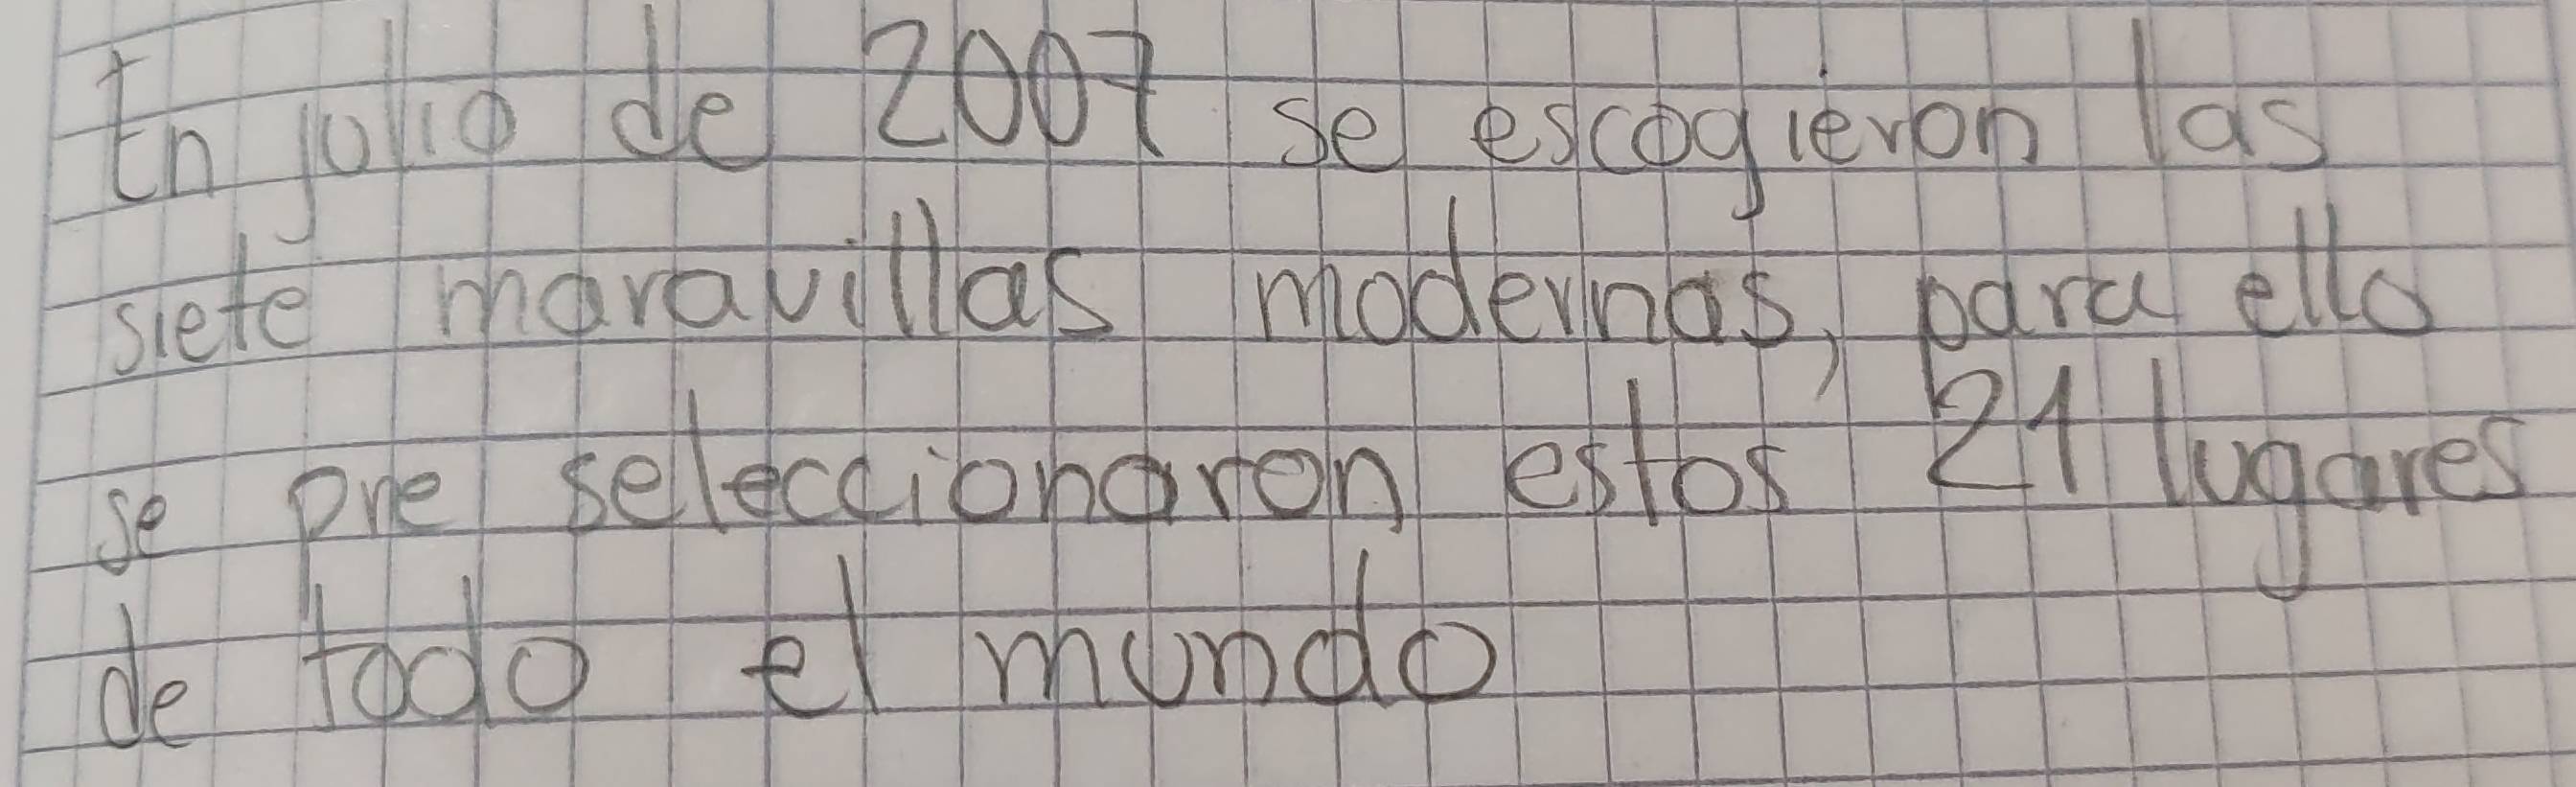 En julio de 2007 se escogieron las
siete maravillas modernas, para ello
se pre seleccionaron estos 21 lugares
de todo el mundo